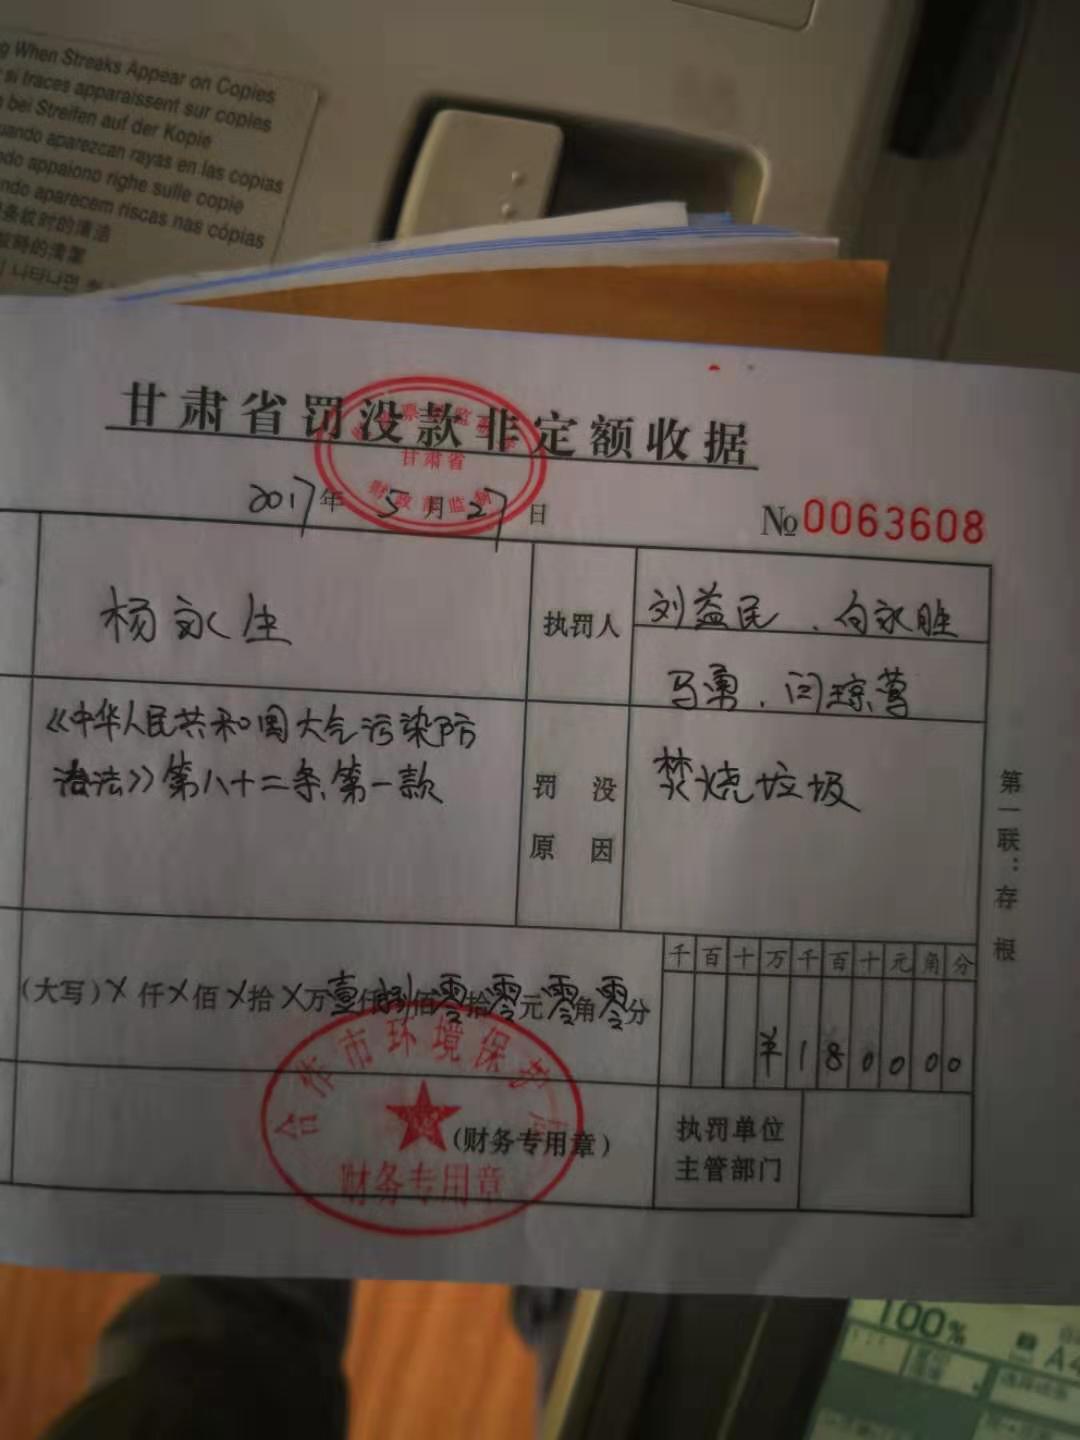 g When Streaks Appear on Copies
si traces apparaissent sur copies
bei Streifen auf der Kopie
uando aparezcan rayas en las copias
ndo appaiono righe sulle copie
ndo aparecem riscas nas cópias
条纹时的清洁
甘肃省罚没款非定额收据
甘肃省
2017年 5月27日
№0063608
杨永生
执罚人
刘益民、白永胜
马勇、闫琼莺
《中华人民共和国大气污染防
治法》第八十二条第一款
罚没
原因
焚烧垃圾
第一联：存根
千百十万千百十元角分
(大写)X仟X佰X拾X万壹仟捌佰零拾零元零角零分
¥180000
合作市环境保护局
(财务专用章)
财务专用章
执罚单位
主管部门
100%
A4